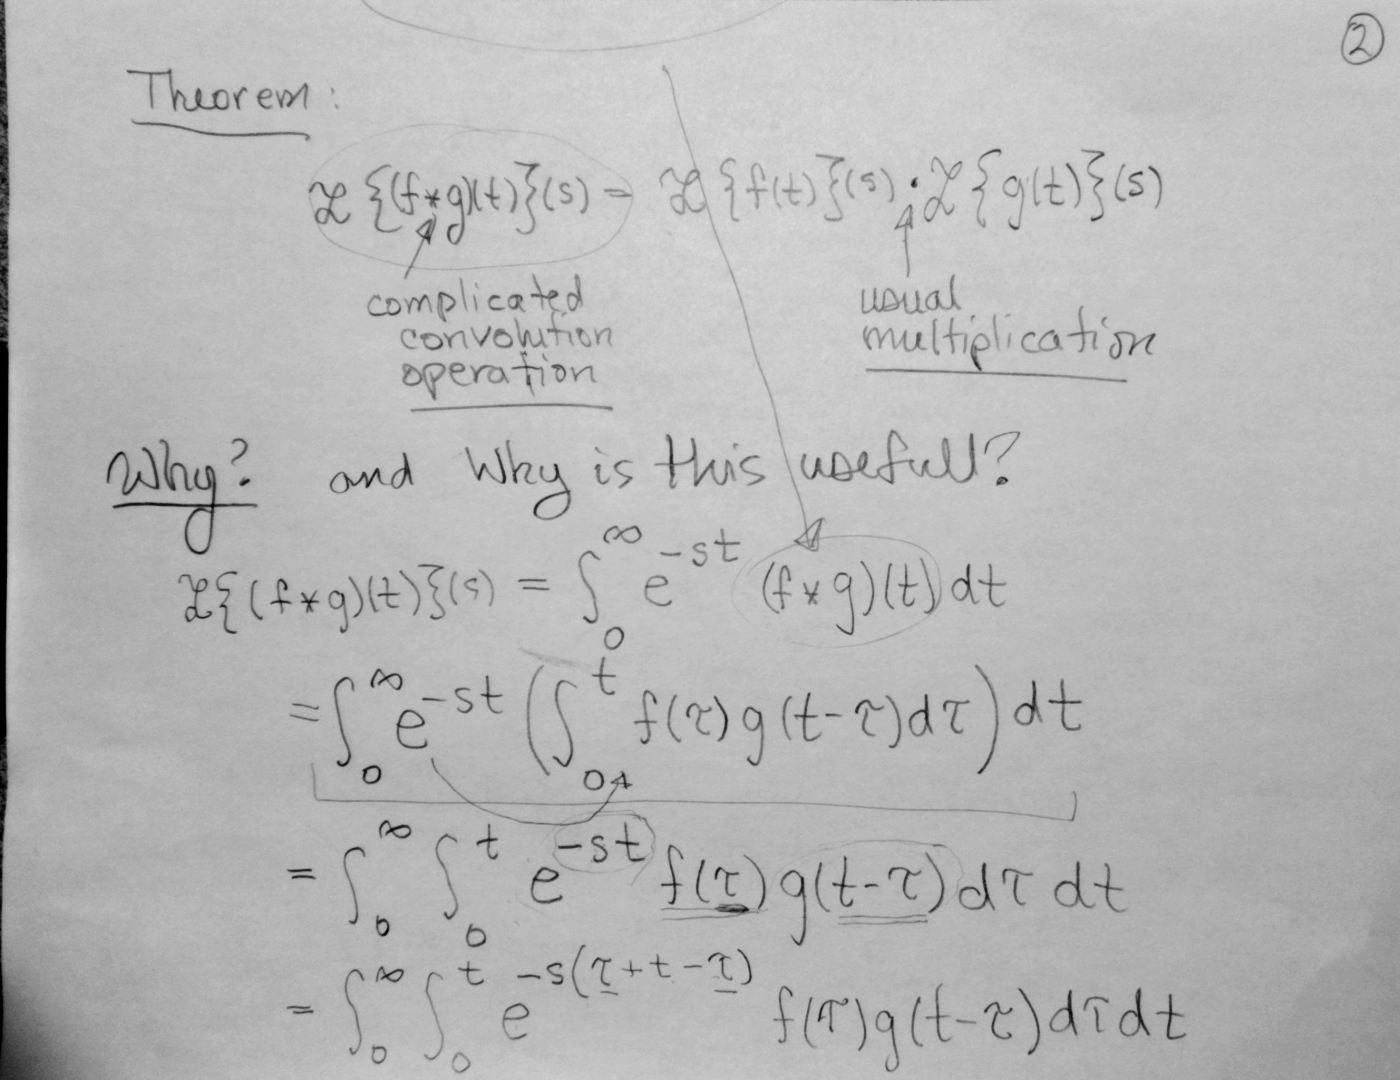 ②
Theorem:
ℒ{(f*g)(t)}(s) = ℒ{f(t)}(s) · ℒ{g(t)}(s)
complicated
convolution
operation
usual
multiplication
Why? and Why is this usefull?
ℒ{(f*g)(t)}(s) = ∫₀^∞ e^{-st} (f*g)(t) dt
= ∫₀^∞ e^{-st} (∫₀^t f(τ) g(t-τ)dτ) dt
= ∫₀^∞ ∫₀^t e^{-st} f(τ) g(t-τ) dτ dt
= ∫₀^∞ ∫₀^t e^{-s(τ+t-τ)} f(τ)g(t-τ)dτdt